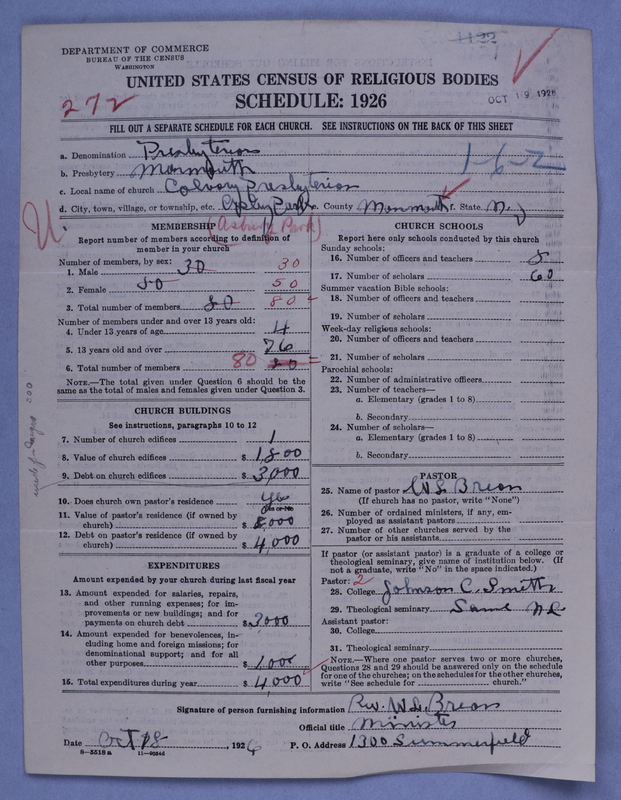 1122
DEPARTMENT OF COMMERCE
BUREAU OF THE CENSUS
WASHINGTON
UNITED STATES CENSUS OF RELIGIOUS BODIES
272
SCHEDULE: 1926
OCT 19 1926
FILL OUT A SEPARATE SCHEDULE FOR EACH CHURCH. SEE INSTRUCTIONS ON THE BACK OF THIS SHEET
a. Denomination Presbyterian
b. Presbytery Monmouth 1-6-2
c. Local name of church Calvary Presbyterian
d. City, town, village, or township, etc. Park County Monmouth f. State N. J
U.
(Asbury Park)
MEMBERSHIP
Report number of members according to definition of
member in your church
Number of members, by sex:
1. Male 30 30
2. Female 50 50
3. Total number of members 80 80
Number of members under and over 13 years old:
4. Under 13 years of age 4
5. 13 years old and over 76
6. Total number of members 80 80
NOTE.—The total given under Question 6 should be
the same as the total of males and females given under Question 3.
CHURCH BUILDINGS
See instructions, paragraphs 10 to 12
7. Number of church edifices 1
8. Value of church edifices $ 1,800
9. Debt on church edifices $ 3,000
10. Does church own pastor's residence Yes
(Yes or No)
11. Value of pastor's residence (if owned by
church) $ 8,000
12. Debt on pastor's residence (if owned by
church) $ 4,000
EXPENDITURES
Amount expended by your church during last fiscal year
13. Amount expended for salaries, repairs,
and other running expenses; for im-
provements or new buildings; and for
payments on church debt $ 3000
14. Amount expended for benevolences, in-
cluding home and foreign missions; for
denominational support; and for all
other purposes $ 1,000
15. Total expenditures during year $ 4,000
CHURCH SCHOOLS
Report here only schools conducted by this church
Sunday schools:
16. Number of officers and teachers 8
17. Number of scholars 60
Summer vacation Bible schools:
18. Number of officers and teachers
19. Number of scholars
Week-day religious schools:
20. Number of officers and teachers
21. Number of scholars
Parochial schools:
22. Number of administrative officers
23. Number of teachers—
a. Elementary (grades 1 to 8)
b. Secondary
24. Number of scholars—
a. Elementary (grades 1 to 8)
b. Secondary
PASTOR
25. Name of pastor W L Breon
(If church has no pastor, write "None")
26. Number of ordained ministers, if any, em-
ployed as assistant pastors
27. Number of other churches served by the
pastor or his assistants
If pastor (or assistant pastor) is a graduate of a college or
theological seminary, give name of institution below. (If
not a graduate, write "No" in the space indicated.)
Pastor: 2
28. College Johnson C. Smith
29. Theological seminary Same
Assistant pastor:
30. College
31. Theological seminary
NOTE.—Where one pastor serves two or more churches,
Questions 28 and 29 should be answered only on the schedule
for one of the churches; on the schedules for the other churches,
write "See schedule for church."
Signature of person furnishing information Rev. W. L. Breon
Official title Minister
Date Oct 18, 1926 P. O. Address 1300 Summerfield
8-5518a 11-90546